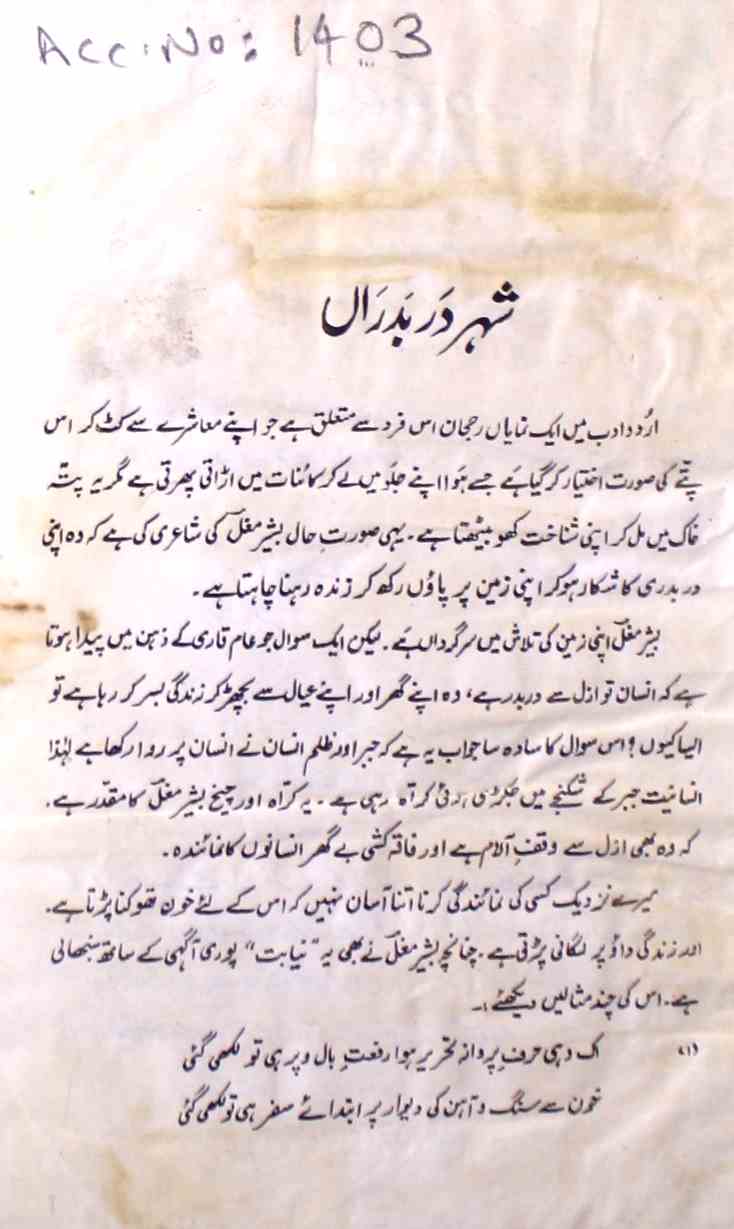 Acc. No: 1403
شہر دَر بَدرَاں
اُردو ادب میں ایک نمایاں رجحان اس فرد سے متعلق ہے جو اپنے معاشرے سے کٹ کر اس
پتّے کی صورت اختیار کر گیا ہے جسے ہَوا اپنے جلَو میں لے کر کائنات میں اڑاتی پھرتی ہے مگر یہ پتہ
خاک میں مل کر اپنی شناخت کھو بیٹھتا ہے۔ یہی صورتِ حال بشیر مغلؔ کی شاعری کی ہے کہ وہ اپنی
در بدری کا شکار ہو کر اپنی زمین پر پاؤں رکھ کر زندہ رہنا چاہتا ہے۔
بشیر مغلؔ اپنی زمین کی تلاش میں سرگرداں ہے۔ لیکن ایک سوال جو عام قاری کے ذہن میں پیدا ہوتا
ہے کہ انسان تو ازل سے در بدر ہے، وہ اپنے گھر اور اپنے عیال سے بچھڑ کر زندگی بسر کر رہا ہے تو
ایسا کیوں؟ اس سوال کا سادہ سا جواب یہ ہے کہ جبر اور ظلم انسان نے انسان پر روا رکھا ہے لہٰذا
انسانیت جبر کے شکنجے میں جکڑی ہوئی کراہ رہی ہے۔ یہ کرّاہ اور چیخ بشیر مغلؔ کا مقدّر ہے۔
کہ وہ بھی ازل سے وقفِ آلام ہے اور فاقہ کشی بے گھر انسانوں کا نمائندہ۔
میرے نزدیک کسی کی نمائندگی کرنا اتنا آسان نہیں کہ اس کے لئے خون تھوکنا پڑتا ہے۔
اور زندگی داؤ پر لگانی پڑتی ہے۔ چنانچہ بشیر مغلؔ نے بھی یہ "نیابت" پوری آگہی کے ساتھ سنبھالی
ہے۔ اس کی چند مثالیں دیکھئے :۔
(۱) اک وہی حرفِ پروانہ تحریر ہوا رفعتِ بال و پر ہی تو لکھی گئی
خون سے سنگ و آہن کی دیوار پر ابتدائے سفر ہی تو لکھی گئی